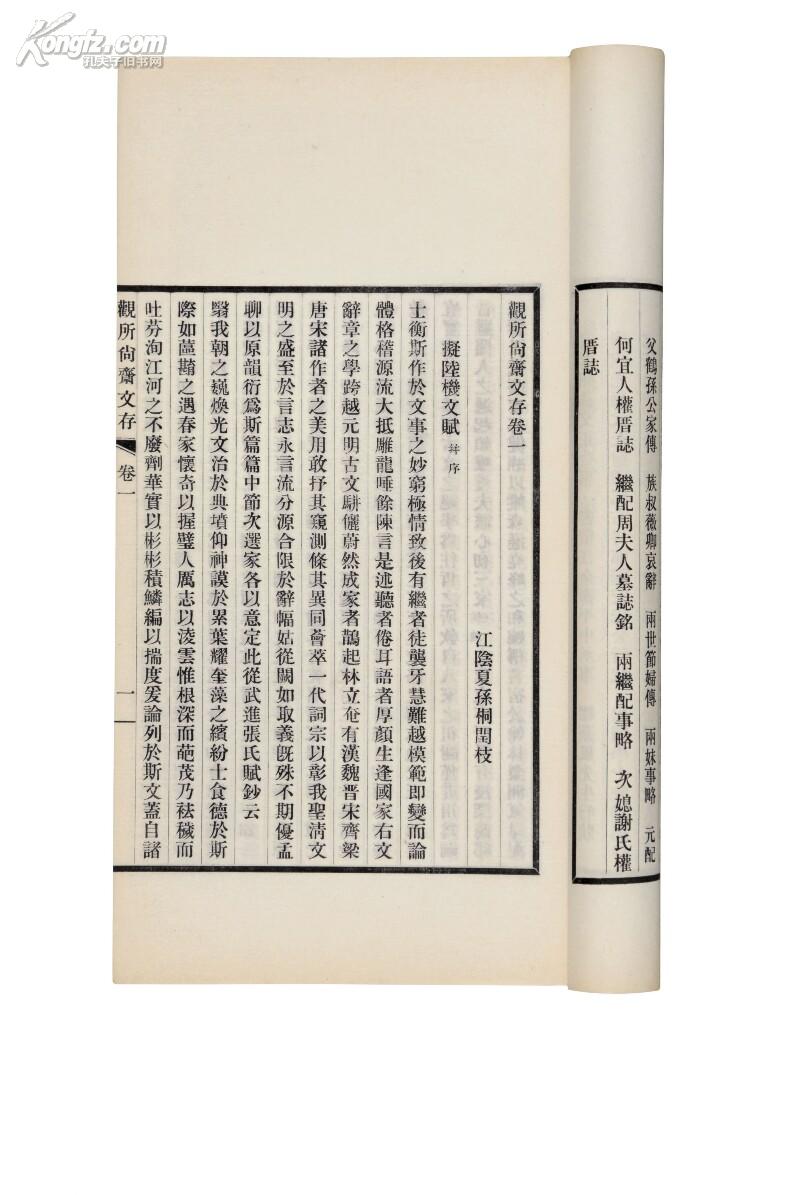 Kongfz.com
孔夫子旧书网
父鶴孫公家傳 族叔薇卿哀辭 兩世節婦傳 兩妹事略 元配
何宜人權厝誌 繼配周夫人墓誌銘 兩繼配事略 次媳謝氏權
厝誌
觀所尙齋文存卷一
江陰夏孫桐閏枝
擬陸機文賦 並序
士衡斯作於文事之妙窮極情致後有繼者徒襲牙慧難越模範卽變而論
體格稽源流大抵雕龍唾餘陳言是述聽者倦耳語者厚顏生逢國家右文
辭章之學跨越元明古文駢儷蔚然成家者鵲起林立奄有漢魏晉宋齊梁
唐宋諸作者之美用敢抒其窺測條其異同薈萃一代詞宗以彰我聖淸文
明之盛至於言志永言流分源合限於辭幅姑從闕如取義旣殊不期優孟
聊以原韻衍爲斯篇篇中節次選家各以意定此從武進張氏賦鈔云
翳我朝之巍煥光文治於典墳仰神謨於累葉耀奎藻之繽紛士食德於斯
際如蘁蘛之遇春家懷奇以握璧人厲志以淩雲惟根深而葩茂乃祛穢而
吐芬洵江河之不廢劑華實以彬彬積鱗編以揣度爰論列於斯文蓋自諸
觀所尙齋文存 卷一 一